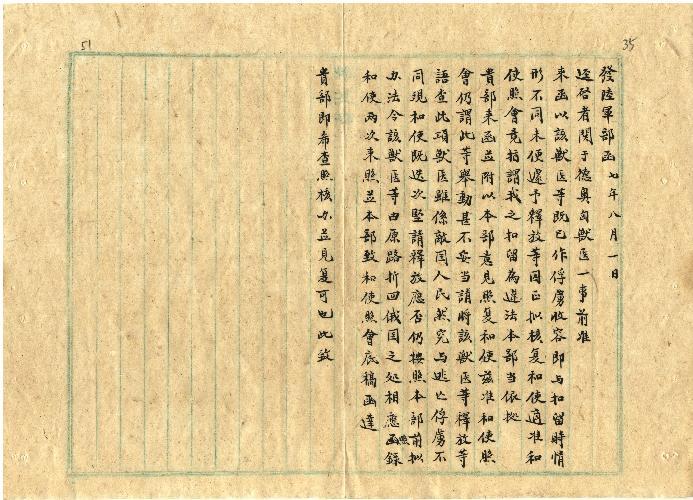 35
51
發陸軍部函 七年八月一日
逕啓者関于德奥匈獸医一事前准
來函以該獸医等既已作俘虜收容即与扣留時情
形不同未便遽予釋放等因正拟核复和使適准和
使照會竟指謂我之扣留為違法本部当依據
貴部來函並附以本部意見照复和使兹准和使照
會仍謂此等舉動甚不妥当請將該獸医等釋放等
語查此項獸医雖係敵国人民然究与逃亡俘虜不
同現和使既迭次堅請釋放應否仍按照本部前拟
办法令該獸医等由原路折回俄国之处相應函錄
和使两次來照並本部致和使照會底稿函達
貴部即希查照核办並見复可也此致